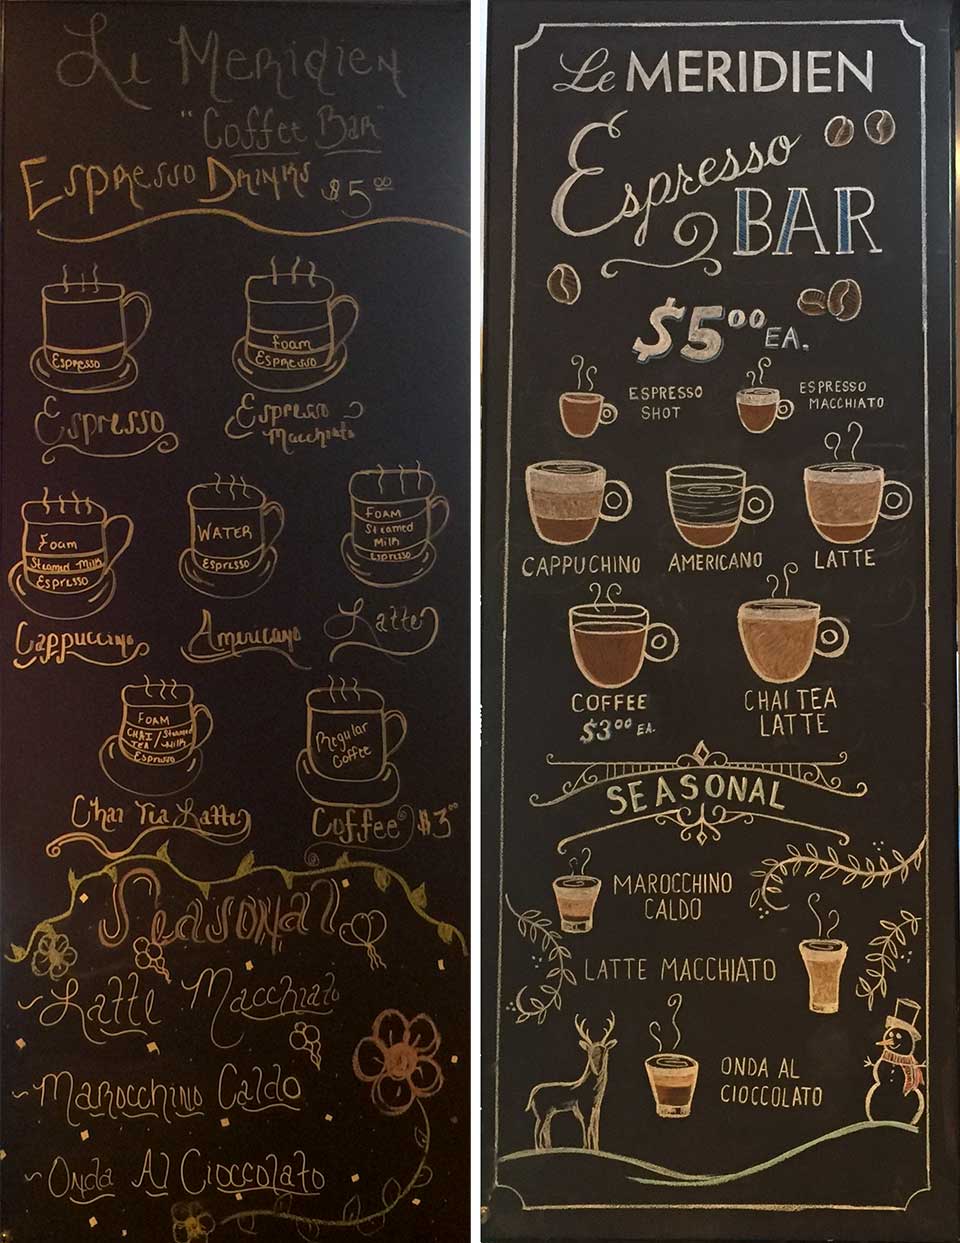 Le Meridien
"Coffee Bar"
Espresso Drinks $5.00
Espresso
Foam
Espresso
Espresso
Espresso
Macchiato
Foam
Steamed Milk
Espresso
Water
Espresso
Foam
Steamed
Milk
Espresso
Cappuccino
Americano
Latte
Foam
Chai Tea / Steamed Milk
Espresso
Regular
Coffee
Chai Tea Latte
Coffee $3.00
Seasonal
~Latte Macchiato
~Marocchino Caldo
~Onda Al Cioccolato
Le MERIDIEN
Espresso
BAR
$5.00 EA.
ESPRESSO
SHOT
ESPRESSO
MACCHIATO
CAPPUCHINO
AMERICANO
LATTE
COFFEE
$3.00 EA.
CHAI TEA
LATTE
SEASONAL
MAROCCHINO
CALDO
LATTE MACCHIATO
ONDA AL
CIOCCOLATO